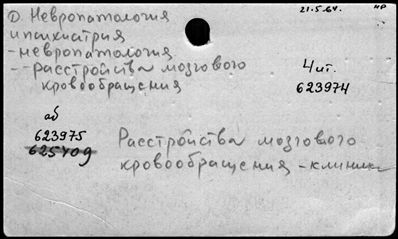 D. Невропатология
и психиатрия
- невропатология
-- расстройства мозгового
кровообращения
21.5.64.
НР
4 чт.
623974
аб
623975
625709
Расстройства мозгового
кровообращения - клиника